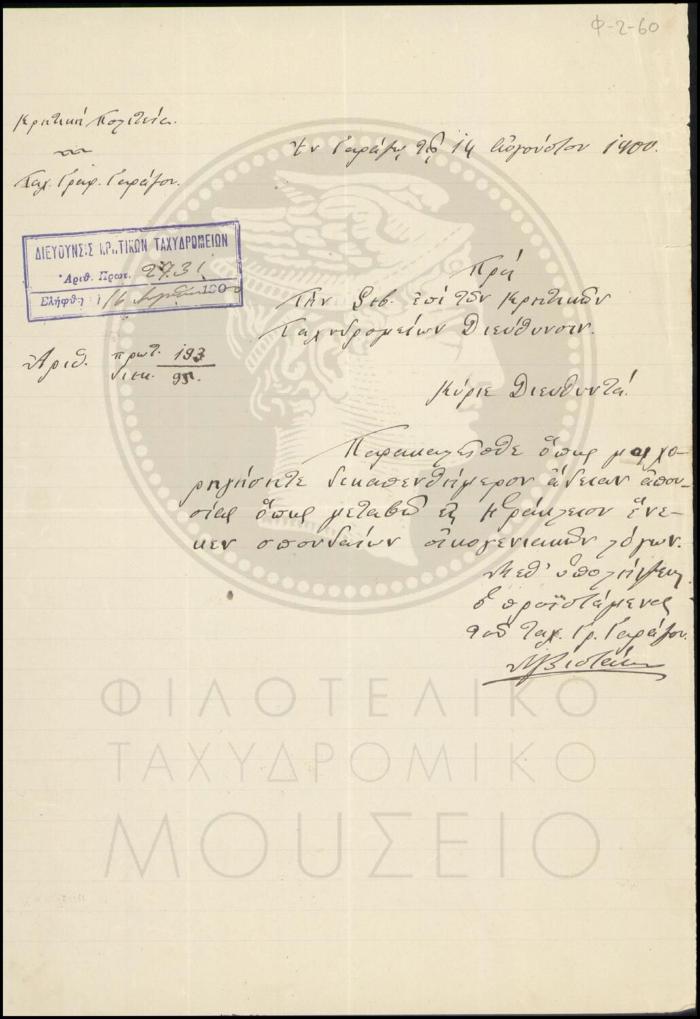 Φ-2-60
Κρητική Πολιτεία.
Ταχ. Γραφ. Γαράζου.
Ἐν Γαράζῳ τῇ 14 Αὐγούστου 1900.
ΔΙΕΥΘΥΝΣΙΣ ΚΡΗΤΙΚΩΝ ΤΑΧΥΔΡΟΜΕΙΩΝ
Ἀριθ. Πρωτ. 2931
Ἐλήφθη 16 1900
Ἀριθ. πρωτ. 193
διεκ. 95.
Πρὸς
Τὴν Σεβ. ἐπὶ τῶν Κρητικῶν
Ταχυδρομείων Διεύθυνσιν.
Κύριε Διευθυντά!
Παρακαλεῖσθε ὅπως μοι χο-
ρηγήσητε δεκαπενθήμερον ἄδειαν ἀπου-
σίας ὅπως μεταβῶ εἰς Ἡράκλειον ἕνε-
κεν σπουδαίων οἰκογενειακῶν λόγων.
Μεθ' ὑπολήψεως
ὁ προϊστάμενος
τοῦ Ταχ. Γρ. Γαράζου.
ΦΙΛΟΤΕΛΙΚΟ
ΤΑΧΥΔΡΟΜΙΚΟ
ΜΟΥΣΕΙΟ